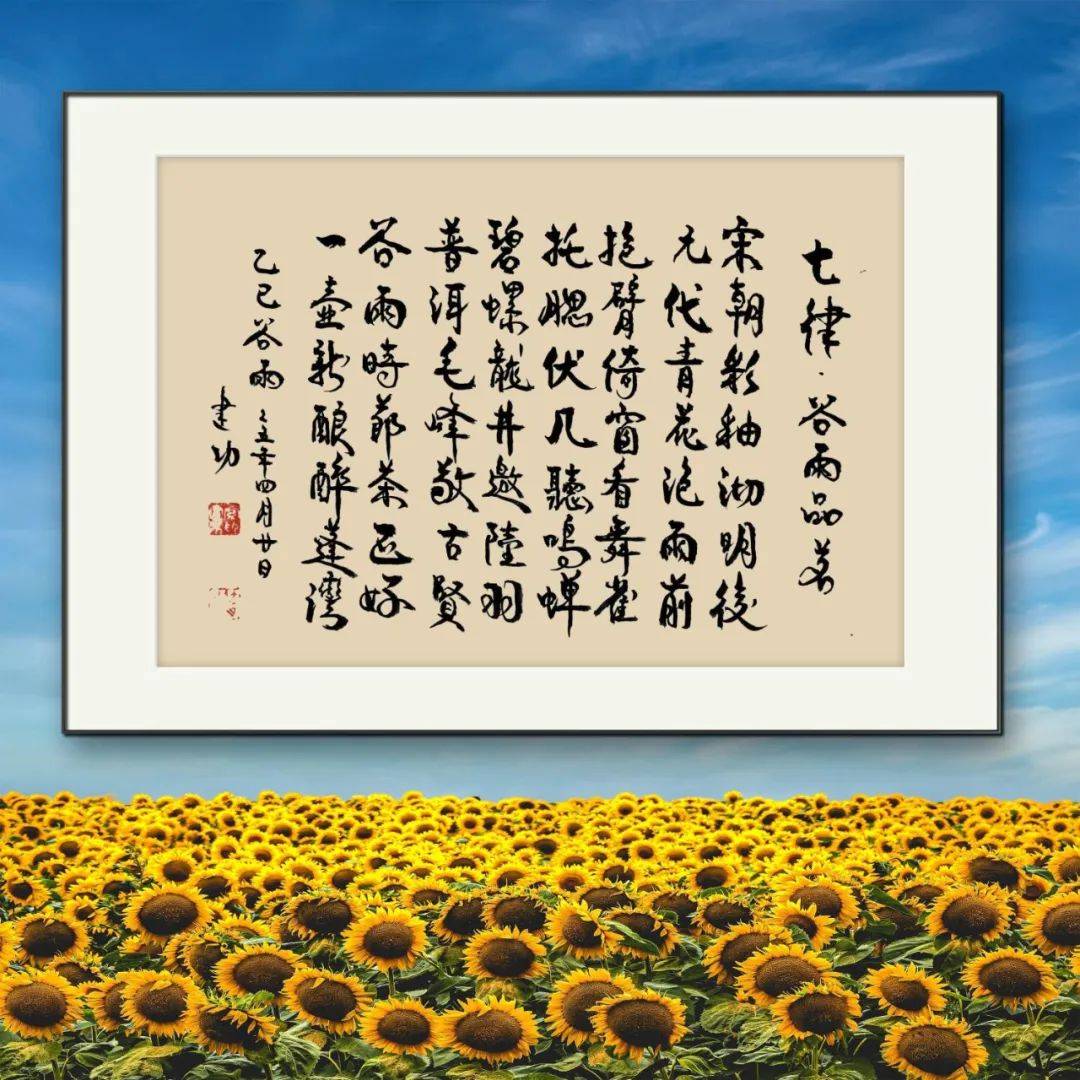 七律·谷雨品茗
宋朝彩釉沏明後
元代青花泡雨前
抱臂倚窗看舞雀
托腮伏几聽鳴蟬
碧螺龍井邀陸羽
普洱毛峰敬古賢
谷雨時節茶正好
一壺新釀醉蓬灣
乙巳谷雨 二五年四月廿日
建功